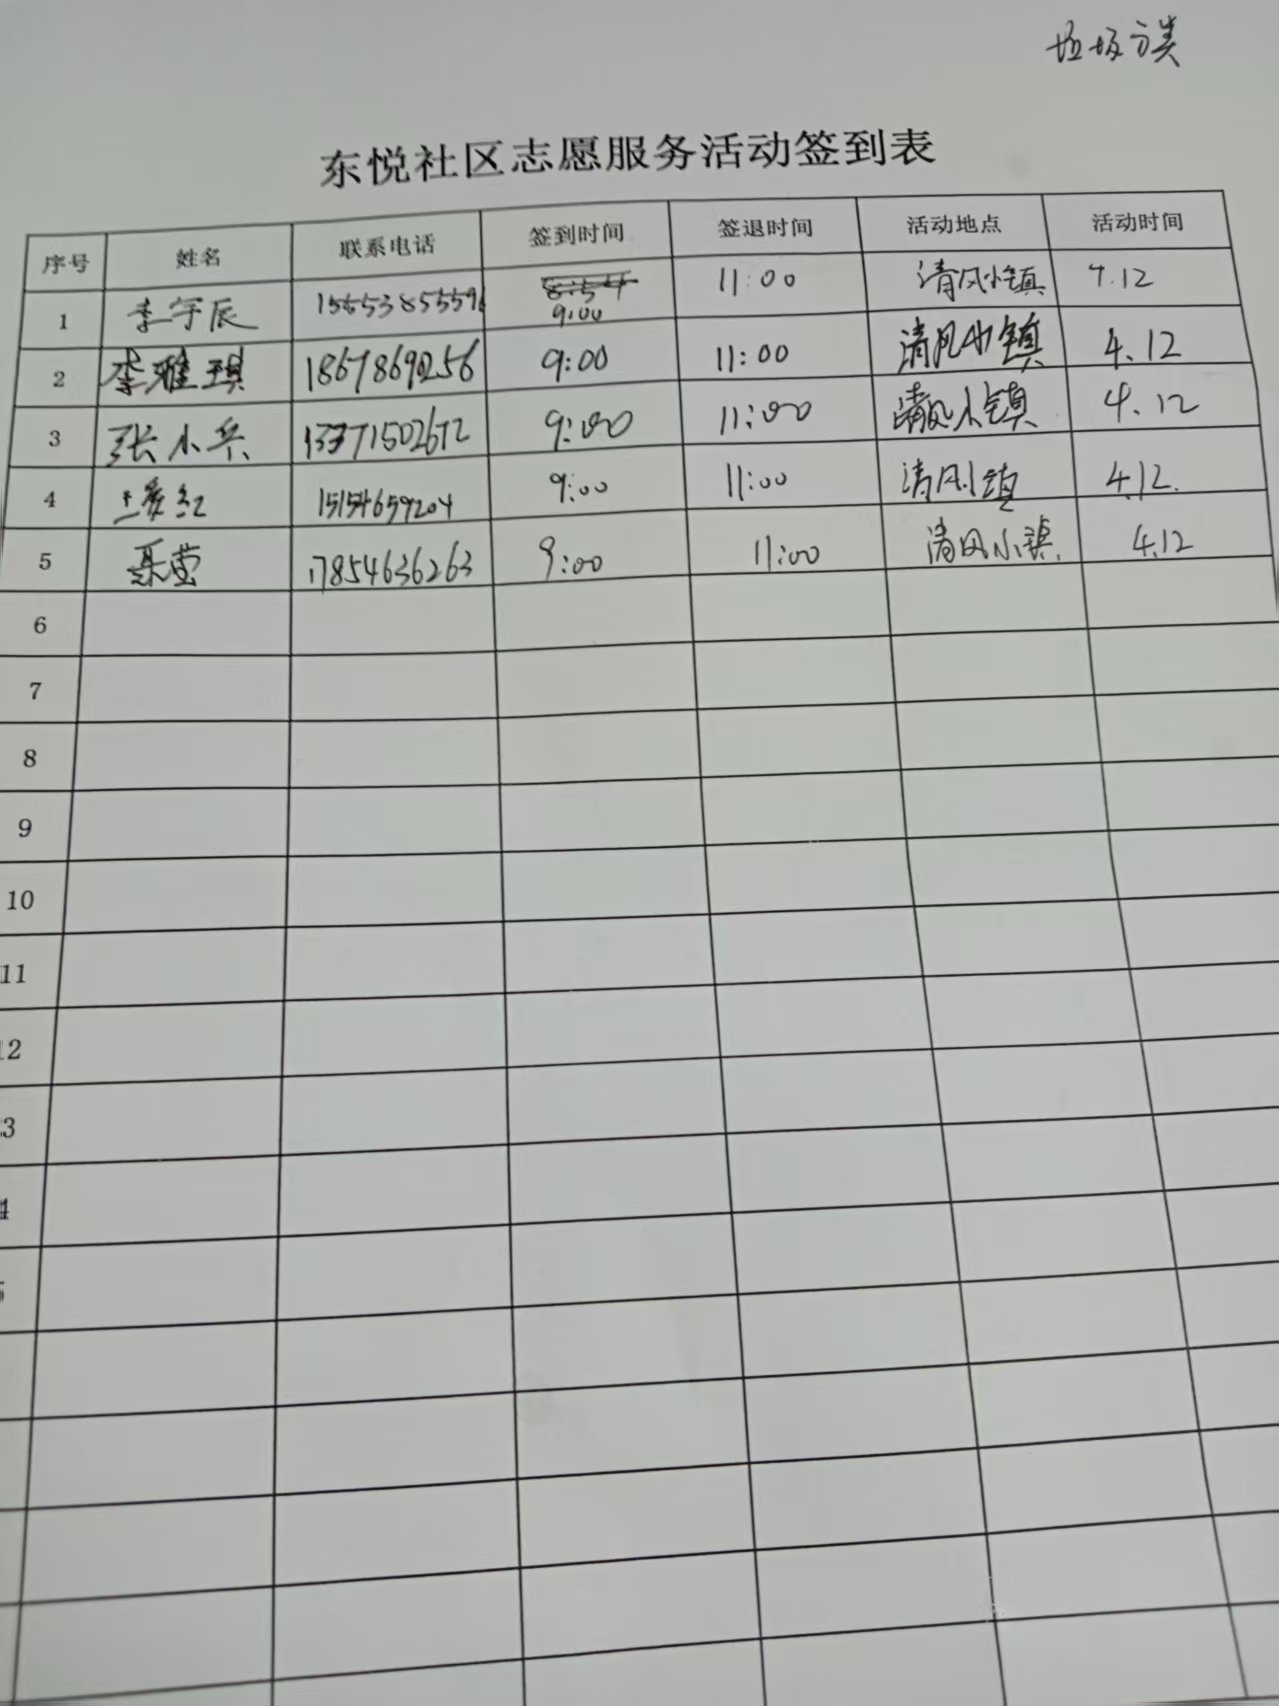 垃圾分类
东悦社区志愿服务活动签到表
序号 姓名 联系电话 签到时间 签退时间 活动地点 活动时间
1 李宇辰 15653855596 8:54 9:00 11:00 清风小镇 4.12
2 李雅琪 18678690256 9:00 11:00 清风小镇 4.12
3 张小兵 13371502672 9:00 11:00 清风小镇 4.12
4 15154659204 9:00 11:00 清风小镇 4.12.
5 17854636263 9:00 11:00 清风小镇 4.12
6
7
8
9
10
11
12
3
4
5